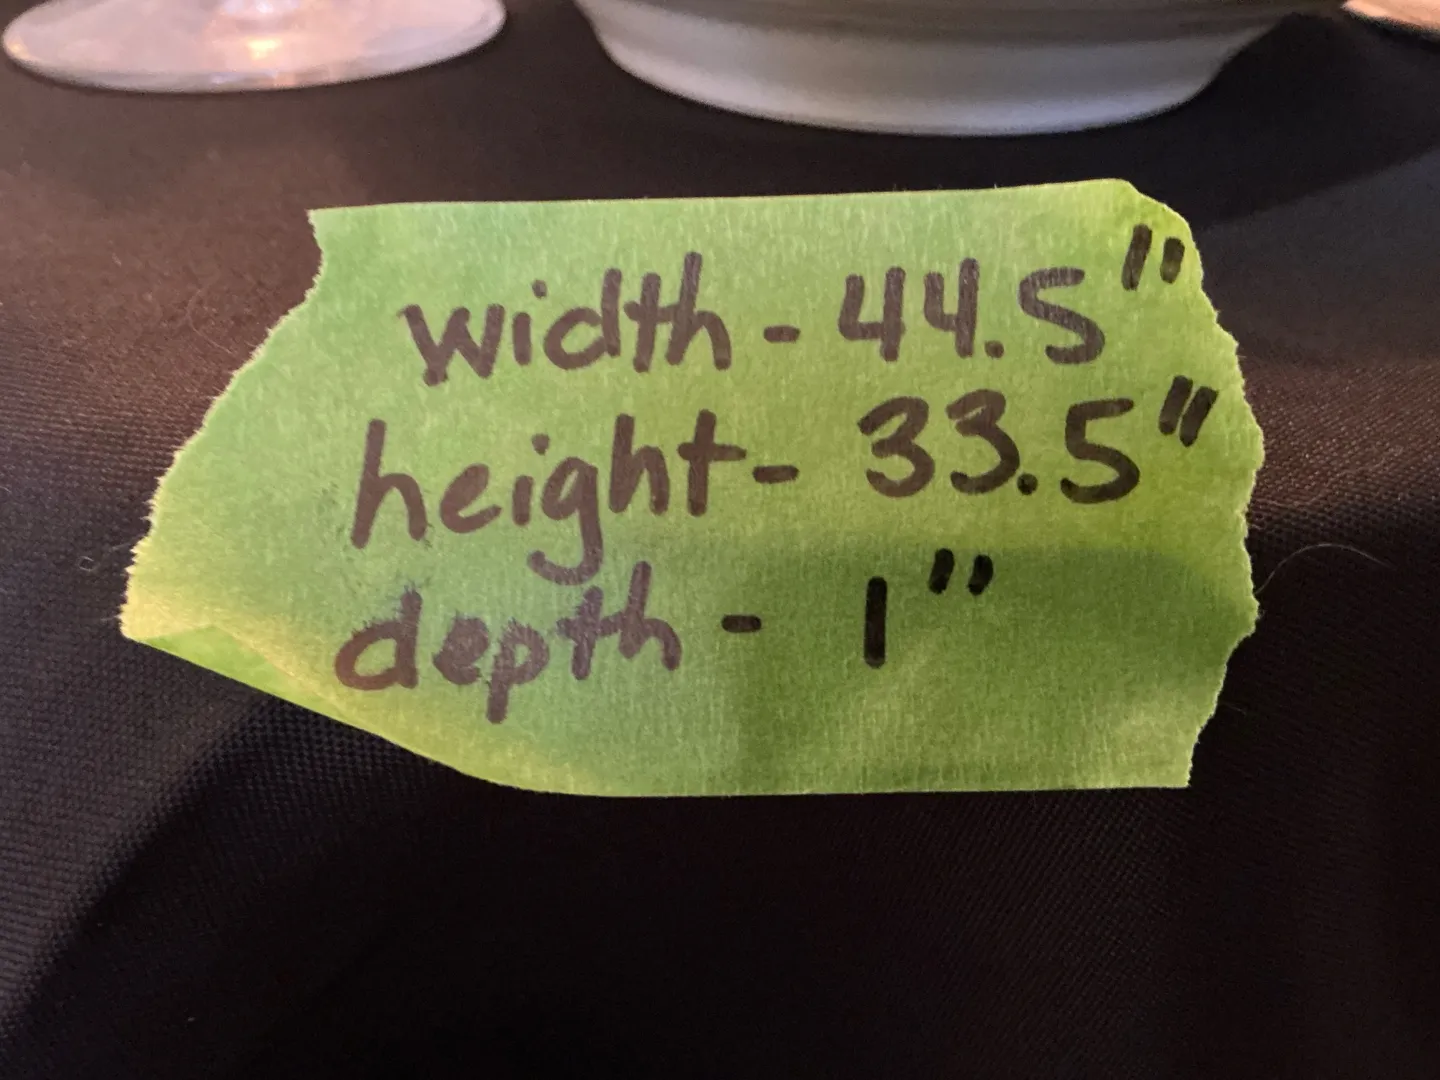 width - 44.5"
height - 33.5"
depth - 1"